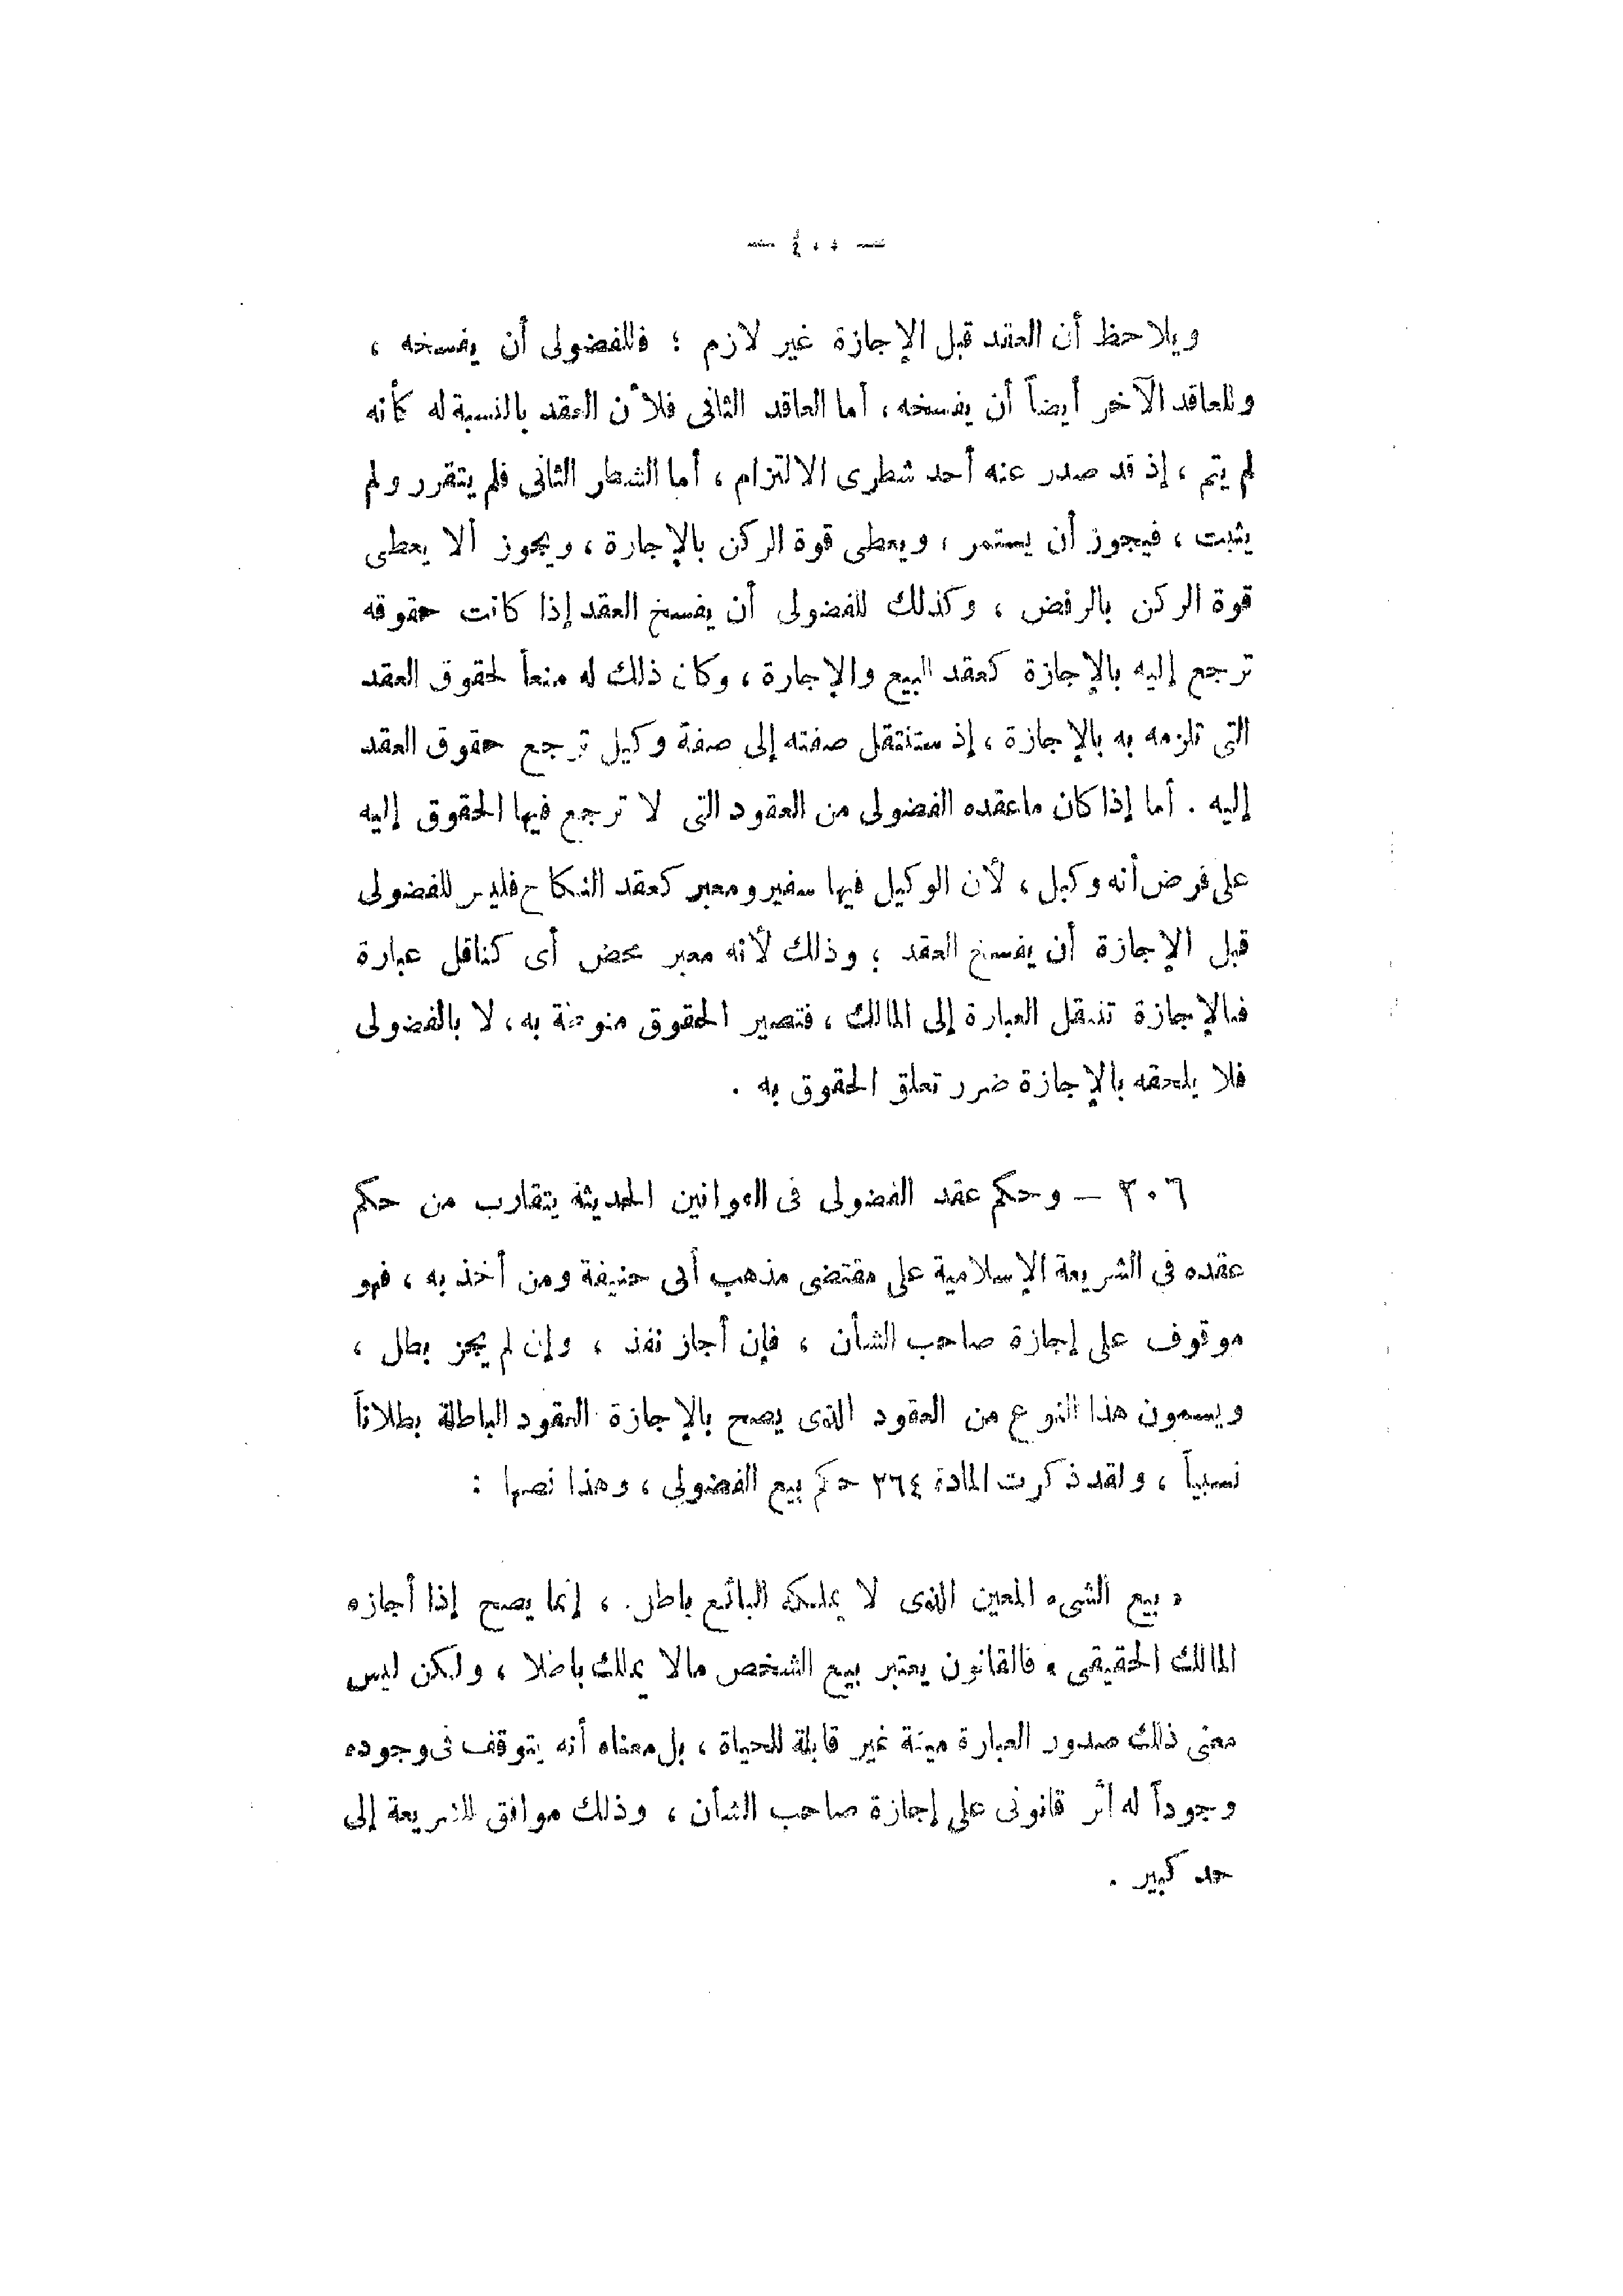 — ٤٠٠ —
ويلاحظ أن العقد قبل الإجازة غير لازم ؛ فللفضولى أن يفسخه ،
وللعاقد الآخر أيضاً أن يفسخه ، أما العاقد الثانى فلأن العقد بالنسبة له كأنه
لم يتم ، إذ قد صدر عنه أحد شطرى الالتزام ، أما الشطر الثانى فلم يتقرر ولم
يثبت ، فيجوز أن يستمر ، ويعطى قوة الركن بالإجارة ، ويجوز ألا يعطى
قوة الركن بالرفض ، وكذلك للفضولى أن يفسخ العقد إذا كانت حقوقه
ترجع إليه بالإجازة كعقد البيع والإجارة ، وكان ذلك له منعاً لحقوق العقد
التى تلزمه به بالإجازة ، إذ ستنتقل صفته إلى صفة وكيل ترجع حقوق العقد
إليه . أما إذا كان ماعقده الفضولى من العقود التى لا ترجع فيها الحقوق إليه
على فرض أنه وكيل ، لأن الوكيل فيها سفير ومعبر كعقد النكاح فليس للفضولى
قبل الإجازة أن يفسخ العقد ؛ وذلك لأنه معبر محض أى كناقل عبارة
فبالإجازة تنتقل العبارة إلى المالك ، فتصير الحقوق منوطة به ، لا بالفضولى
فلا يلحقه بالإجازة ضرر تعلق الحقوق به .
٢٠٦ — وحكم عقد الفضولى فى القوانين الحديثة يتقارب من حكم
عقده فى الشريعة الإسلامية على مقتضى مذهب أبى حنيفة ومن أخذ به ، فهو
موقوف على إجازة صاحب الشأن ، فإن أجاز نفذ ، وإن لم يجز بطل ،
ويسمون هذا النوع من العقود الذى يصح بالإجازة العقود الباطلة بطلاناً
نسبياً ، ولقد ذكرت المادة ٢٦٤ حكم بيع الفضولى ، وهذا نصها :
« بيع الشىء المعين الذى لا يملكه البائع باطل ، إنما يصح إذا أجازه
المالك الحقيقى » فالقانون يعتبر بيع الشخص مالا يملك باطلا ، ولكن ليس
معنى ذلك صدور العبارة ميتة غير قابلة للحياة ، بل معناه أنه يتوقف فى وجوده
وجوداً له أثر قانونى على إجازة صاحب الشأن ، وذلك موافق للشريعة إلى
حد كبير .